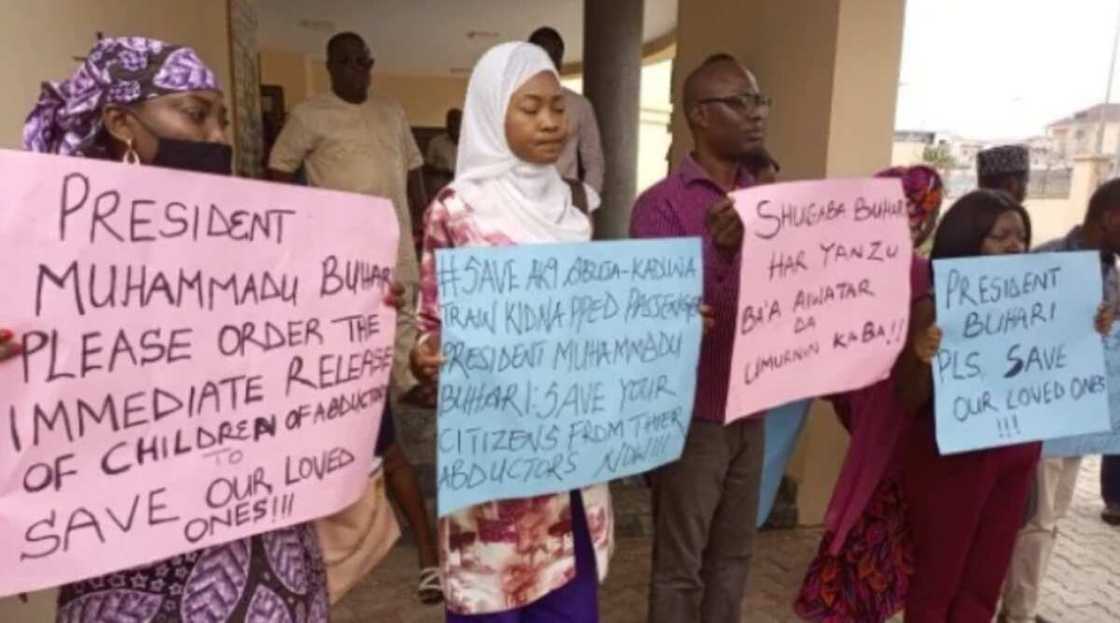 PRESIDENT
MUHAMMADU BUHARI
PLEASE ORDER THE
IMMEDIATE RELEASE
OF CHILDREN OF ABDUCTORS
TO
SAVE OUR LOVED
ONES!!!
#SAVE AK9 ABUJA-KADUNA
TRAIN KIDNAPPED PASSENGER
PRESIDENT MUHAMMADU
BUHARI: SAVE YOUR
CITIZENS FROM THIER
ABDUCTORS NOW!!!
SHUGABA BUHARI
HAR YANZU
BA'A AIWATAR
DA
UMURNIN KA BA!!
PRESIDENT
BUHARI
PLS SAVE
OUR LOVED ONES
!!!